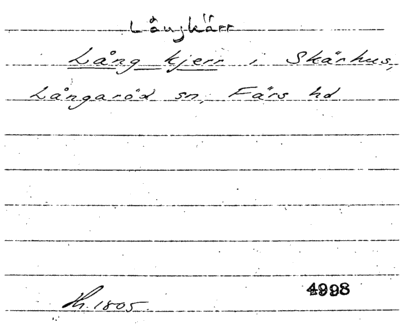 Långkärr
Lång kjerr i Skårhus,
Långaröd sn, Färs hd
Th. 1805.
4998